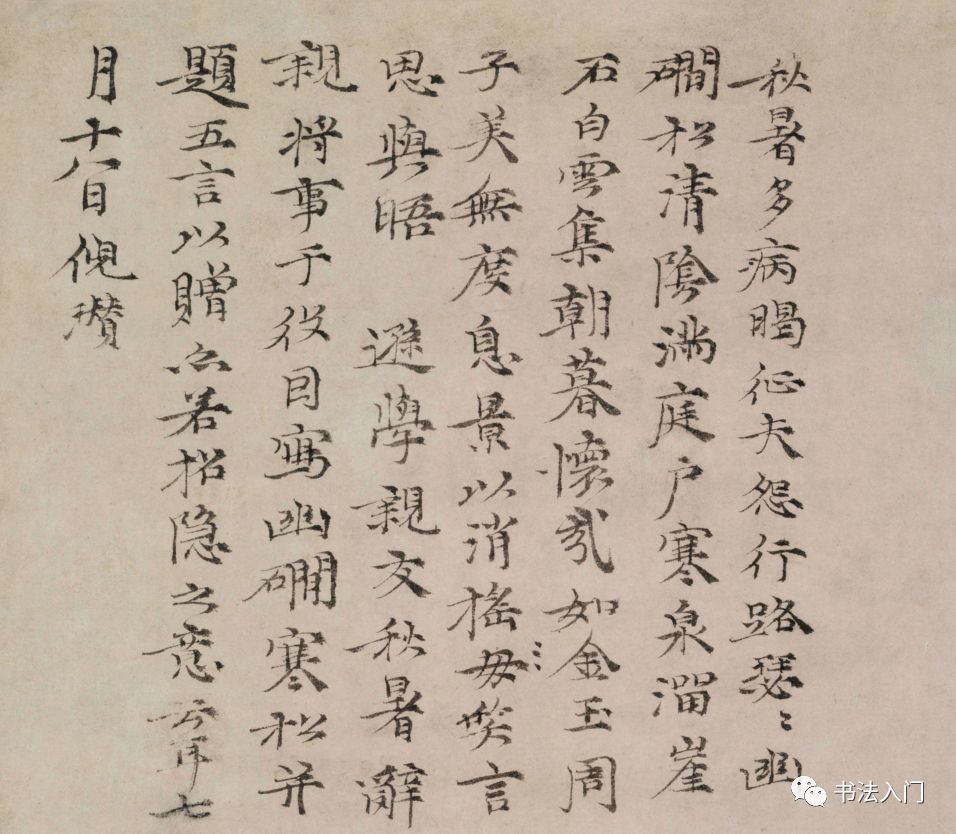 秋暑多病暍征夫怨行路瑟〻幽
磵松清陰滿庭戶寒泉溜崖
石白雲集朝暮懷哉如金玉周
子美無度息景以消搖毋笑言
思與晤 遜學親友秋暑辭
親將事于役因寫幽磵寒松并
題五言以贈亦若招隱之意云耳七
月十八日倪瓚
书法入门